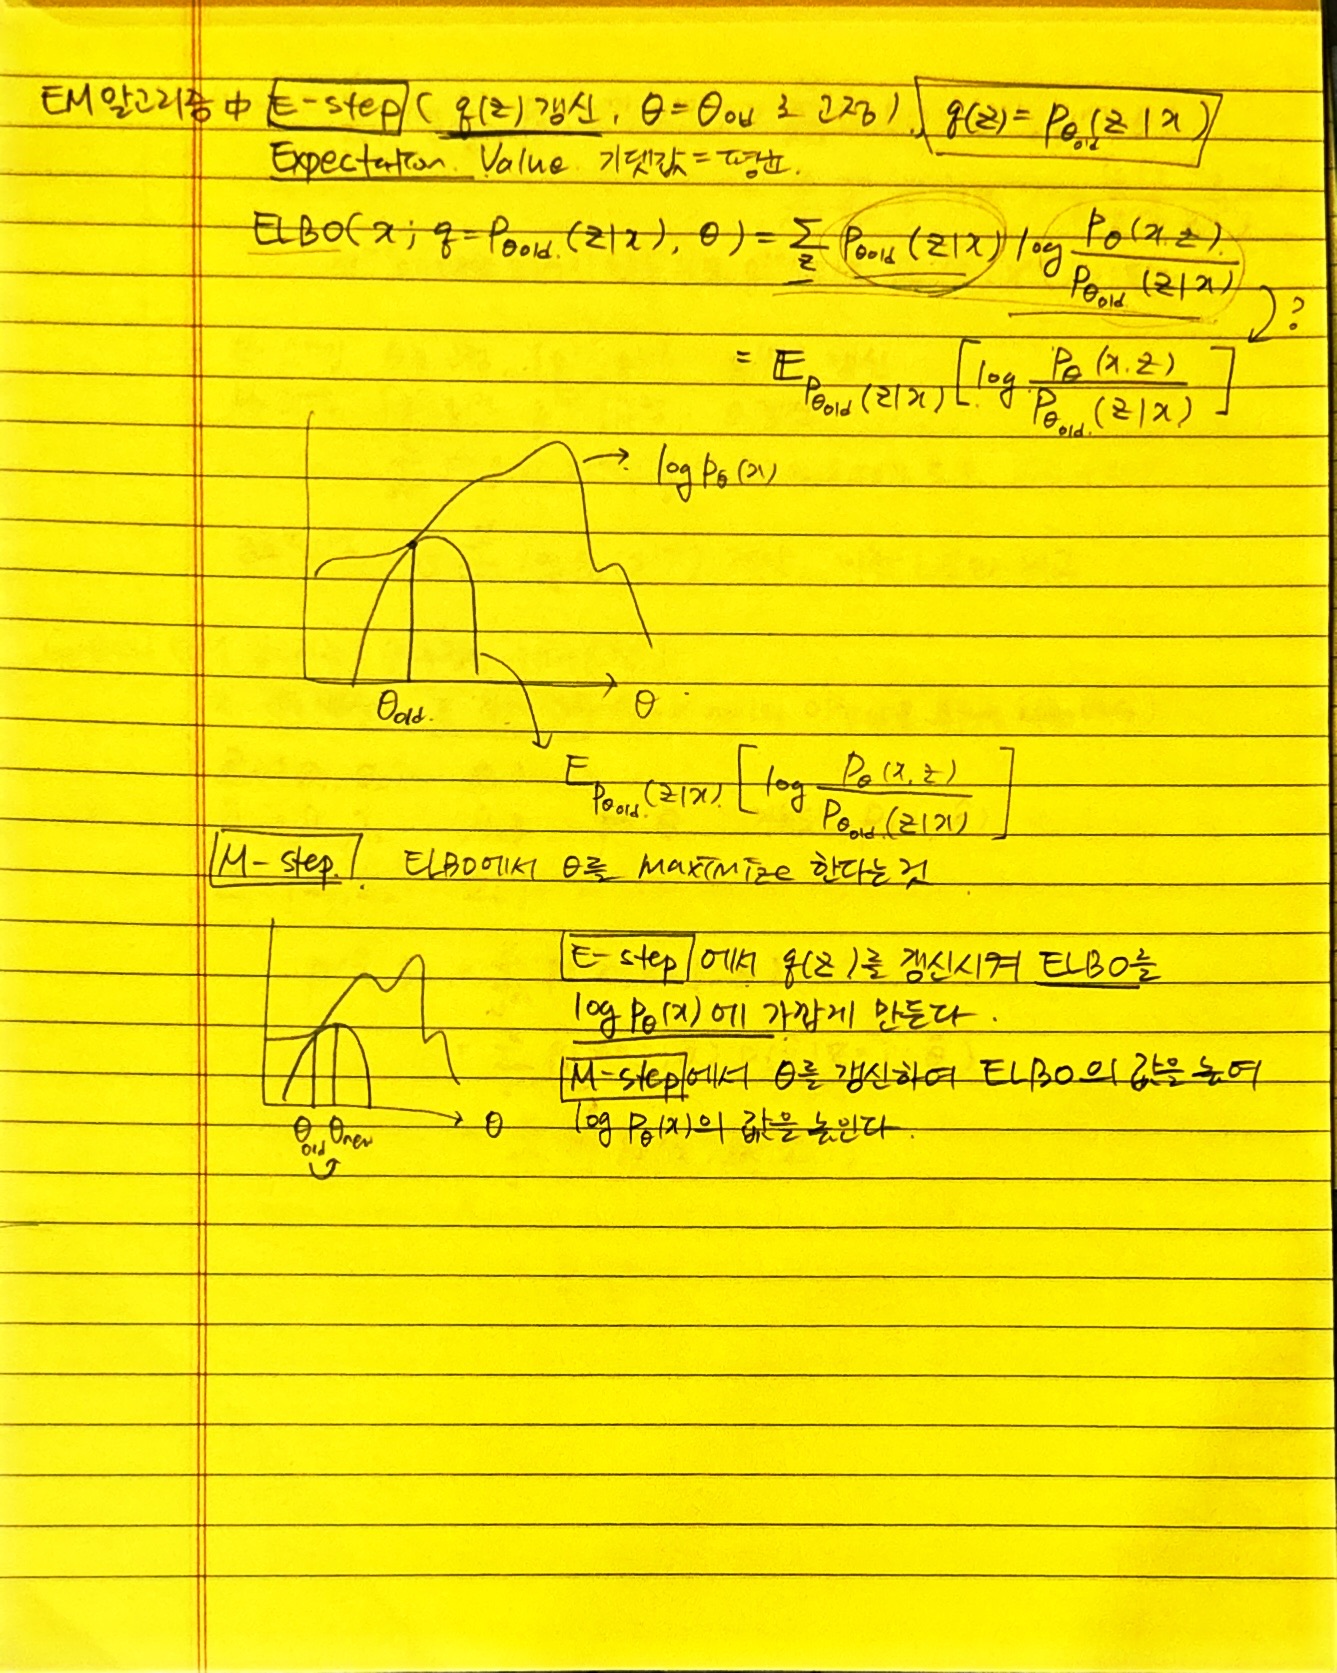 EM 알고리즘 中 E-step ( q(z) 갱신, θ = θold 로 고정 ), q(z) = Pθold(z|x)
Expectation Value 기댓값 = 평균.
ELBO( x ; q = Pθold (z|x), θ ) = Σz Pθold (z|x) log Pθ(x.z) / Pθold (z|x)
?
= E Pθold (z|x) [ log Pθ (x.z) / Pθold.(z|x) ]
→ log Pθ (x)
θold. θ
E Pθold.(z|x). [ log Pθ (x,z) / Pθold.(z|x) ]
M-step. ELBO에서 θ를 Maximize 한다는 것
E-step 에서 q(z)를 갱신시켜 ELBO를
log Pθ(x) 에 가깝게 만든다.
M-step 에서 θ를 갱신하여 ELBO의 값을 높여
log Pθ(x)의 값을 높인다.
θold θnew θ